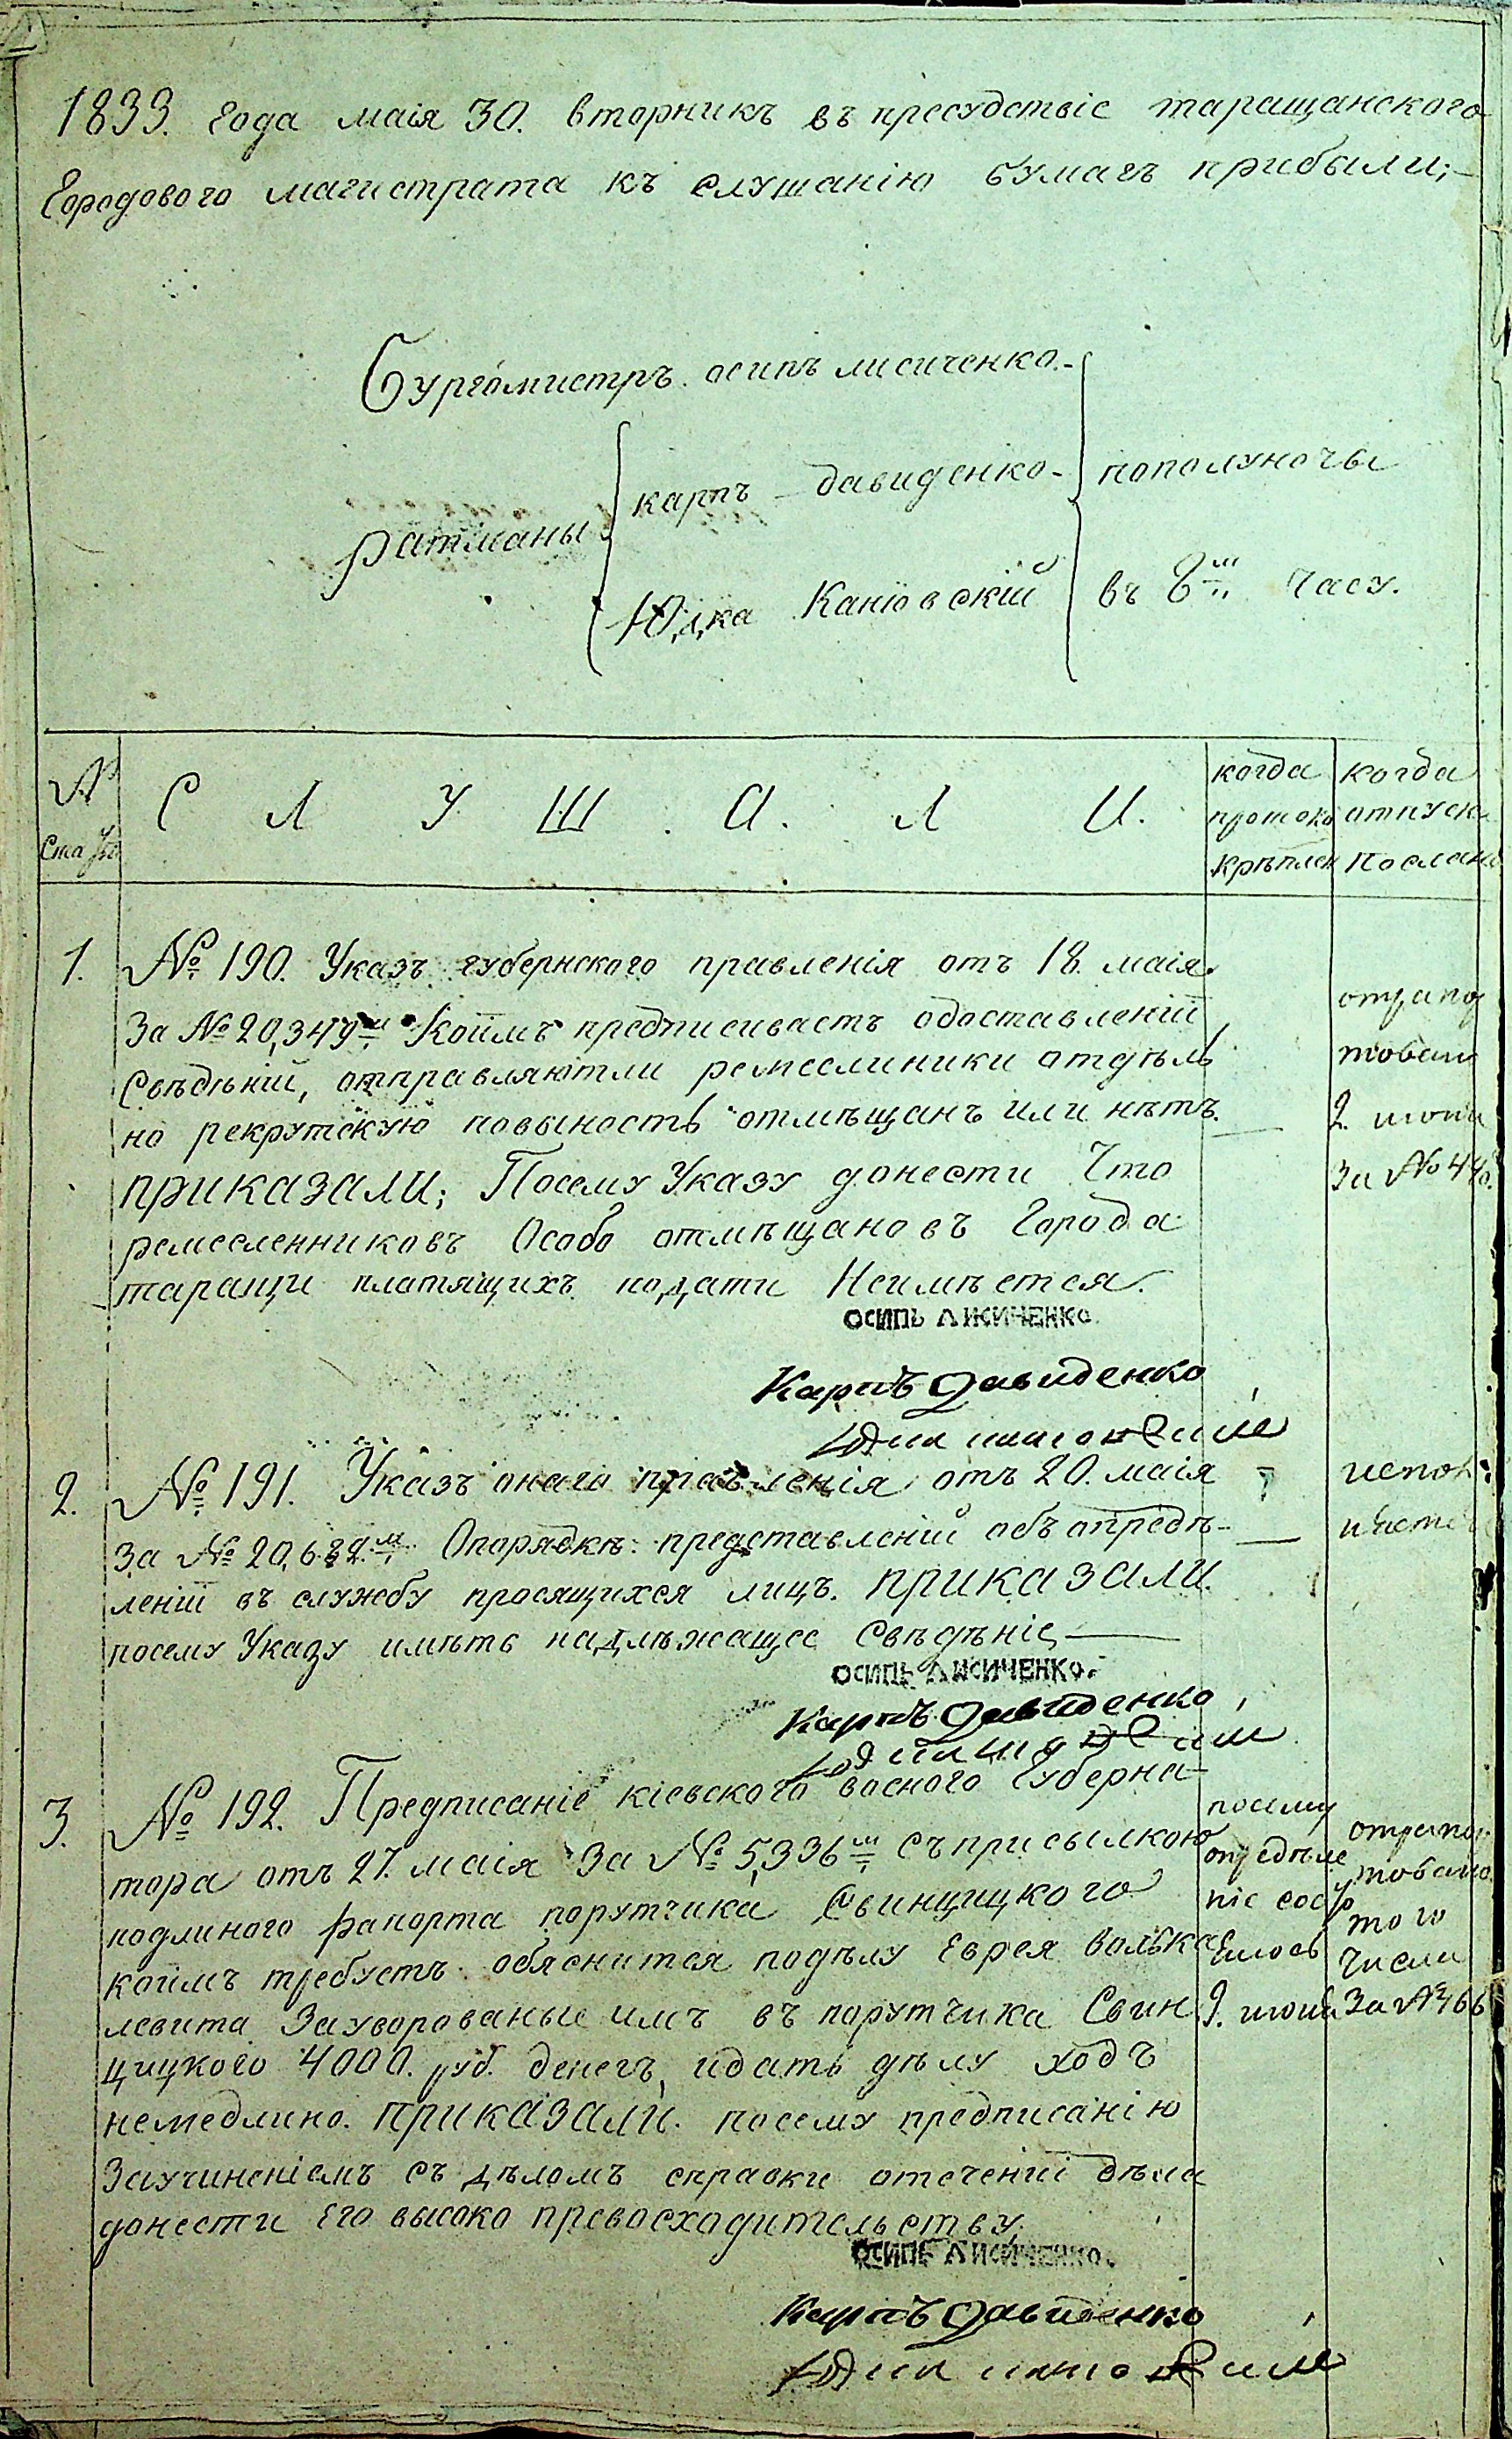 1833. года маія 30. вторникъ въ пресудствіе таращанского
Городового магистрата къ слушанію бумагъ прибыли;-
Бургомистръ осипъ лисиченко.-
ратманы
карпъ давиденко-
Юдка Каніовскій
пополуночы
въ 8м часу.
№
Статьи
С Л У Ш А Л И.
когда
протоко
крѣплен
когда
отпуск
послан
1. № 190. Указъ губернского правленія отъ 18. маія
За № 20,349м Коимъ предписиваетъ одоставленій
Свѣдѣній, отправляютли ремеслиники отдѣль
но рекрутскую повыность отмѣщанъ или нѣтъ.
приказали; Посему Указу донести Что
ремесленниковъ Особо отмѣщановъ Города
таращи платящихъ подати Неимѣется.
отрапор
товано
2. июня
За № 440.
осипъ лисиченко.
Карпъ Давиденко
2. № 191. Указъ онаго правленія отъ 20. маія
За № 20,682м Опорядкѣ представленій объ опредѣ-
леній въ службу просящихся лицъ. приказали.
посему Указу имѣть надлѣжащее Свѣдѣніе
осипъ лисиченко.
Карпъ Давиденко
3. № 192. Предписаніе кіевского военого Губерна-
тора отъ 27. маія За № 5,336м Съприсылкою
подлиного рапорта порутчика Свинцицкого
коимъ требуетъ обяснится подѣлу Еврея волька
левита Зауворованые имъ въ порутчика Свин
цицкого 4000. руб. денегъ, идать дѣлу ходъ
немедлино. приказали. посему предписанію
Заучиненіемъ съ дѣломъ справки отеченіи дѣла
донести Его высоко превосходительству.
посему
опредѣле
ніе состо
ялось
9. июня
отрапор
товано
того
Числа
За № 466
осипъ лисиченко.
Карпъ Давиденко